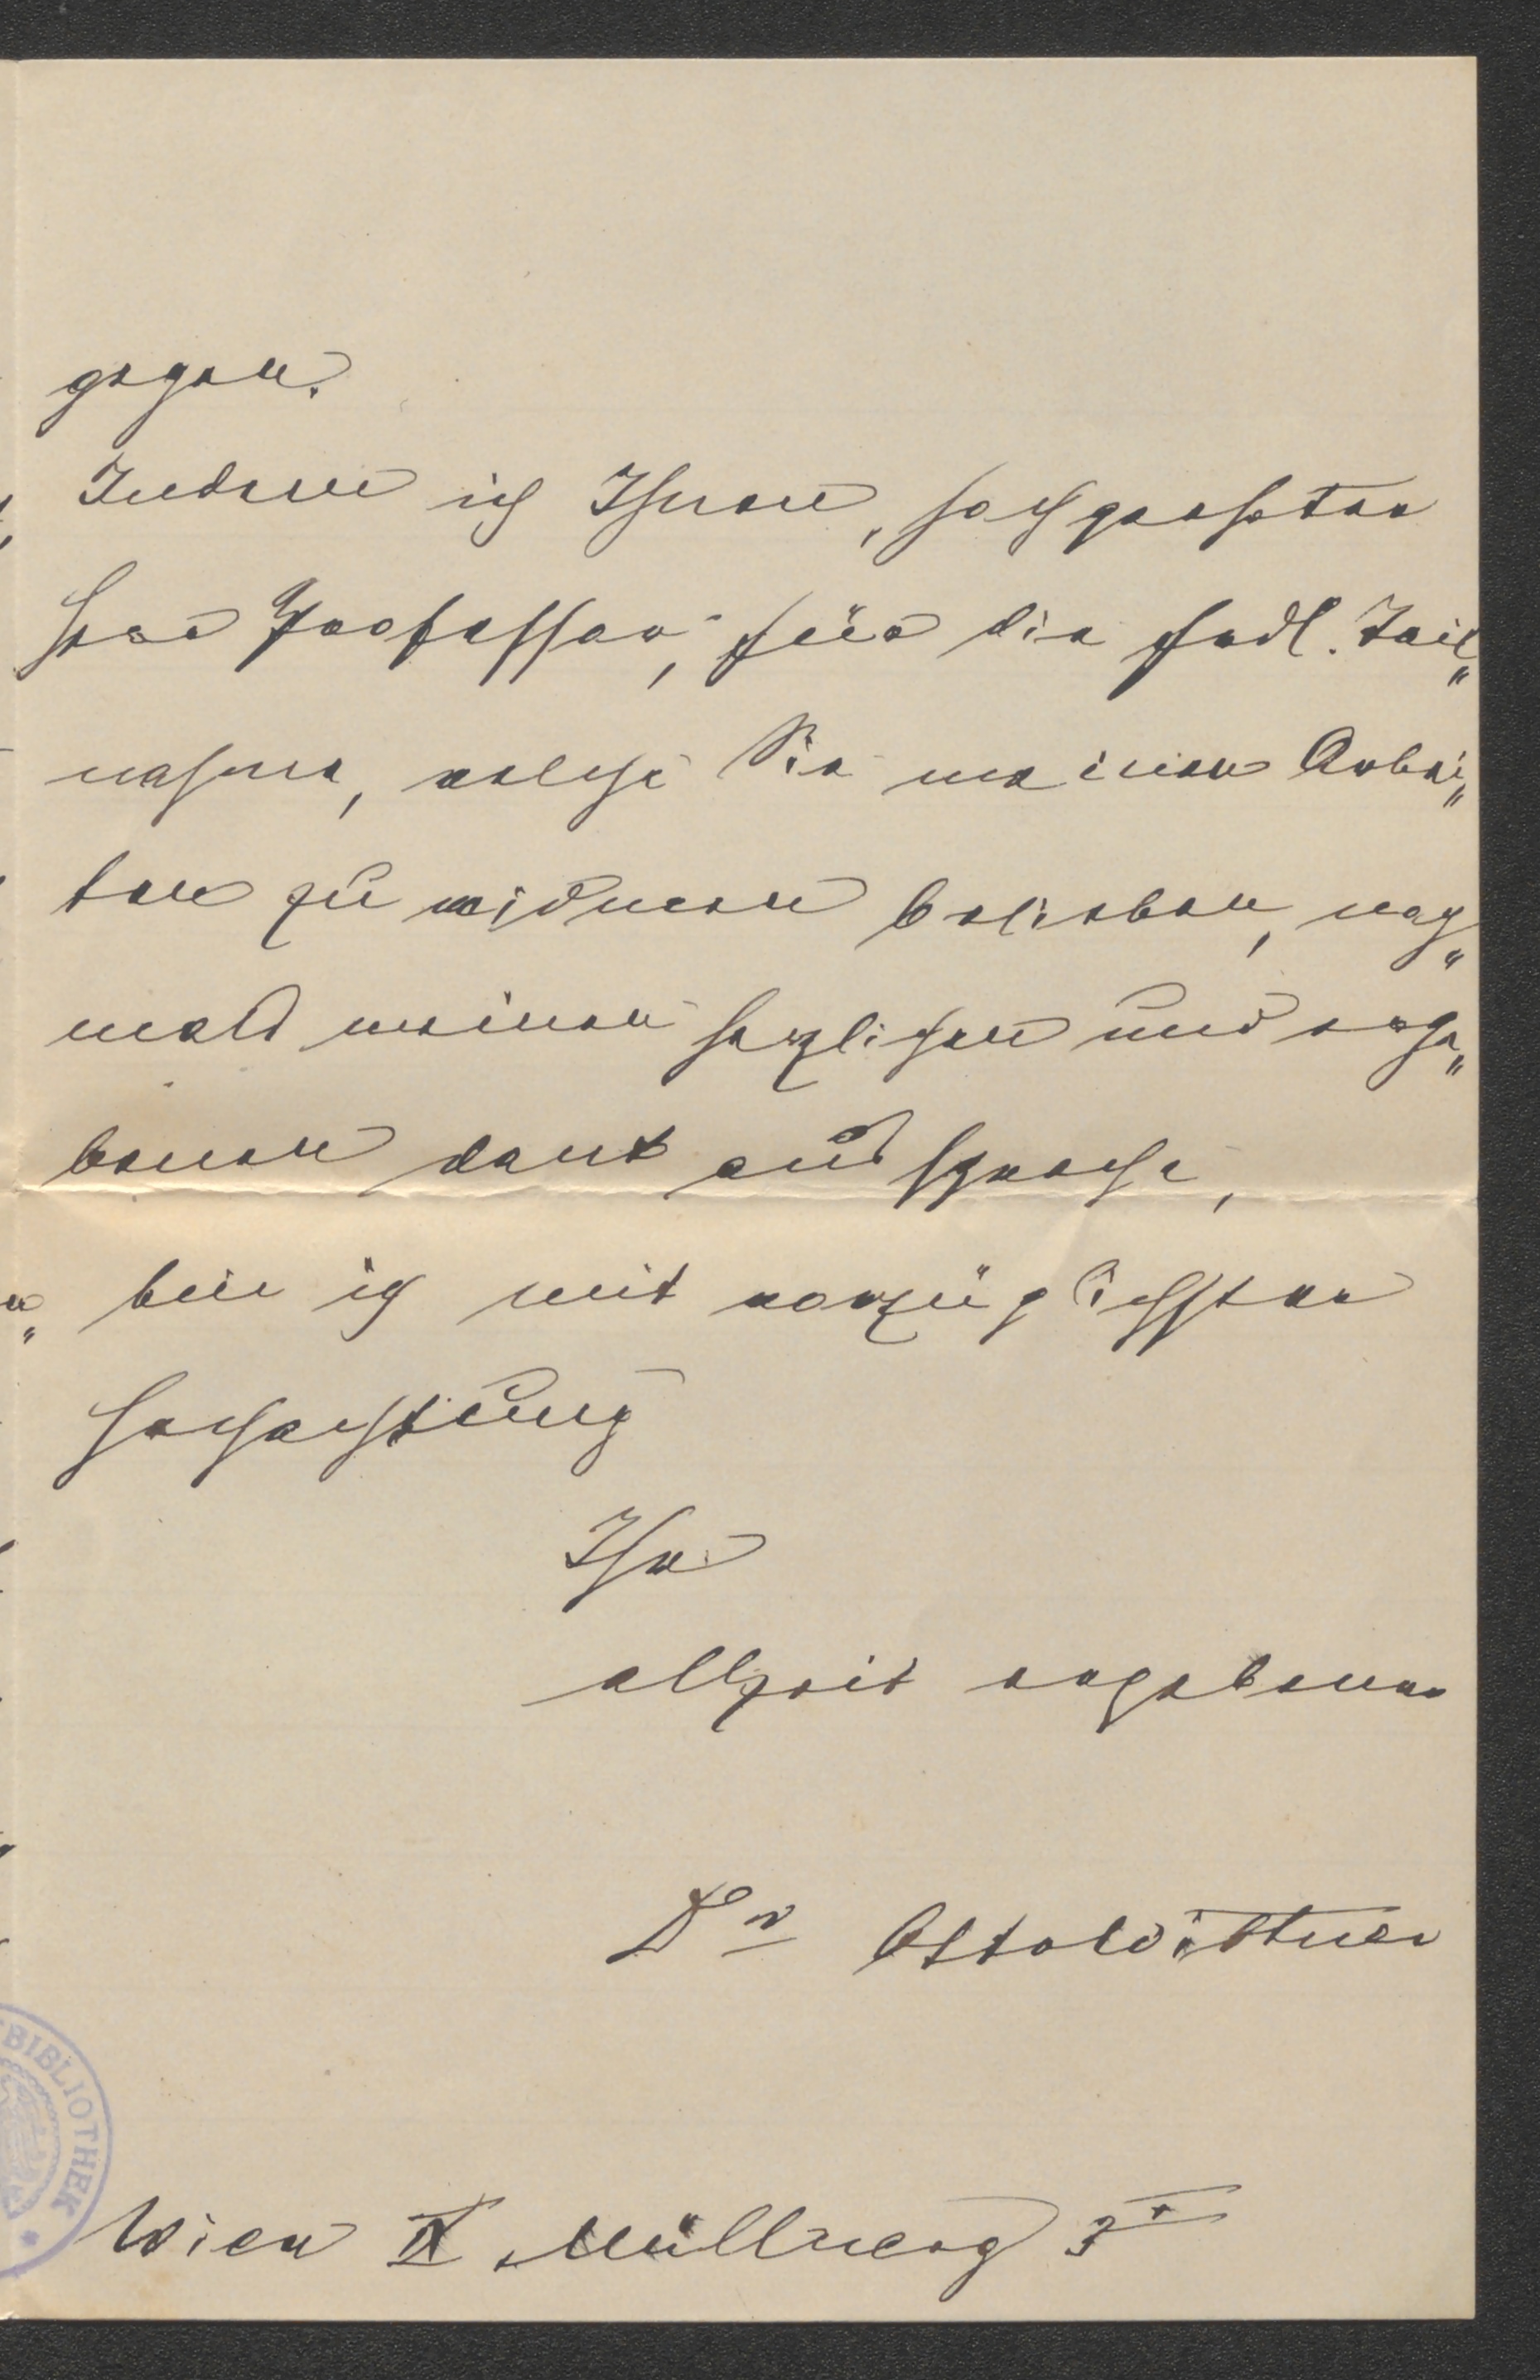 gegen.
Indem ich Ihnen, hochgeehrter
Herr Professor, für die frdl. Teil„
nahme, welche Sie meinen Arbei„
ten zu widmen belieben, noch„
mals meinen herzlichen und erge„
benen Dank ausspreche,
bin ich mit vorzüglichster
Hochachtung
Ihr
allzeit ergebener
Dr
Wien IX Müllnerg 3
BIBLIOTHEK